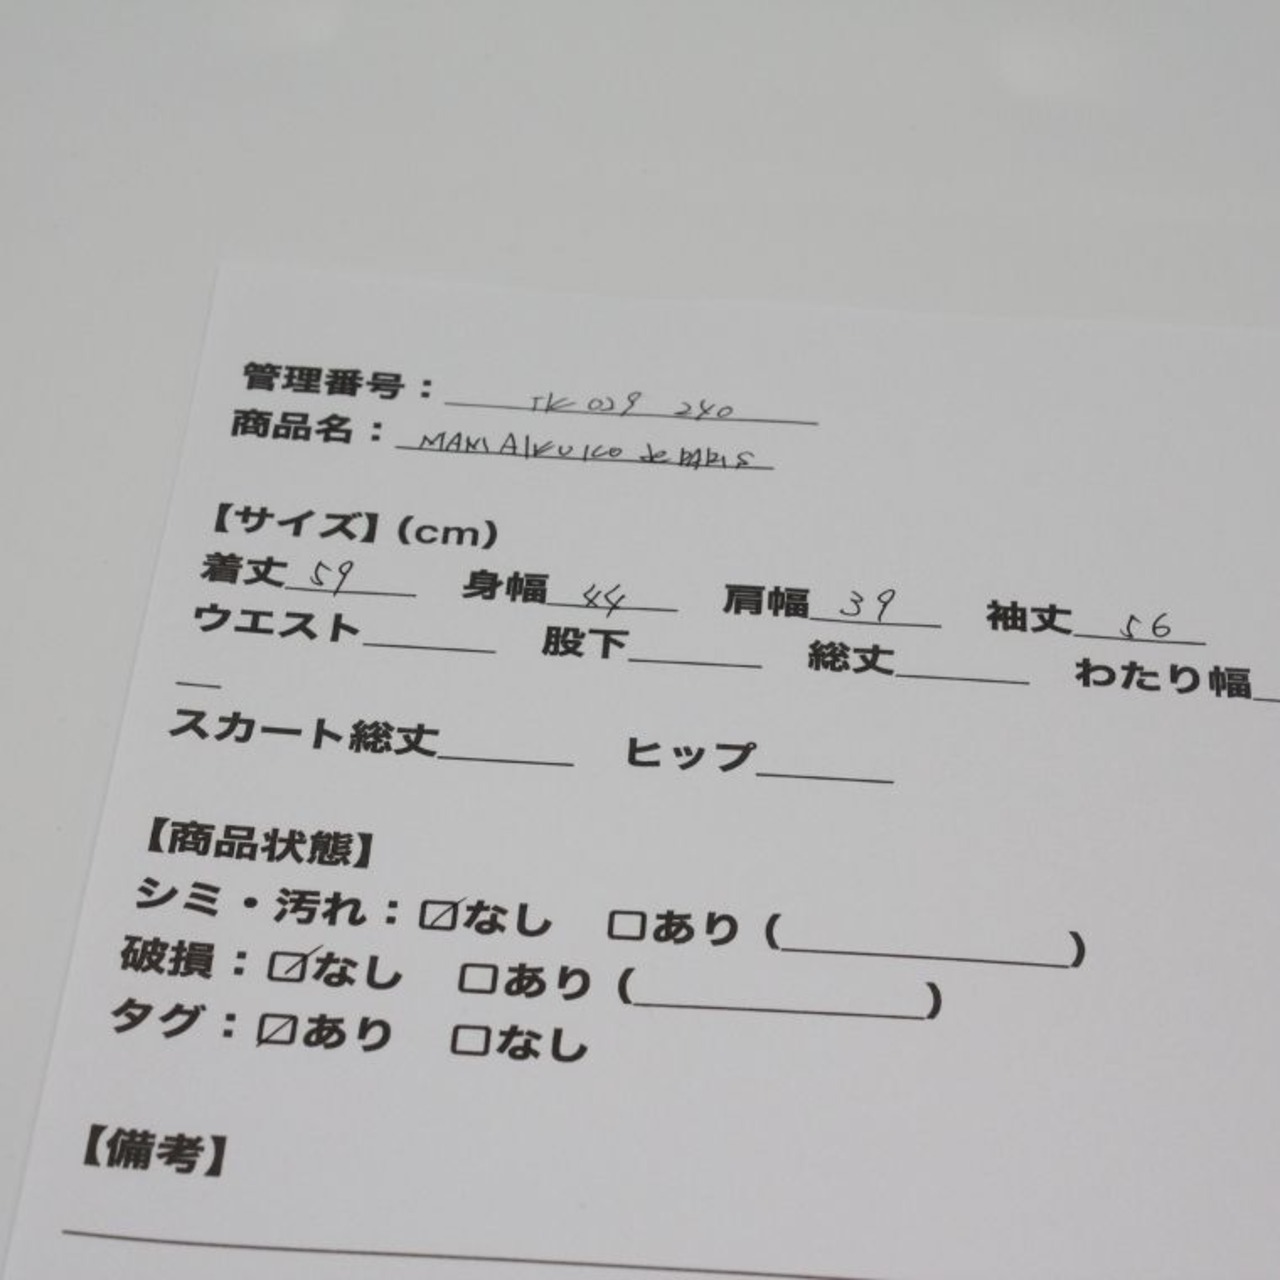 管理番号： IK029 240
商品名： MANI AIKUICO de PARIS
【サイズ】(cm)
着丈 59 身幅 44 肩幅 39 袖丈 56
ウエスト 股下 総丈 わたり幅
スカート総丈 ヒップ
【商品状態】
シミ・汚れ：☑なし □あり ( )
破損：☑なし □あり ( )
タグ：☑あり □なし
【備考】